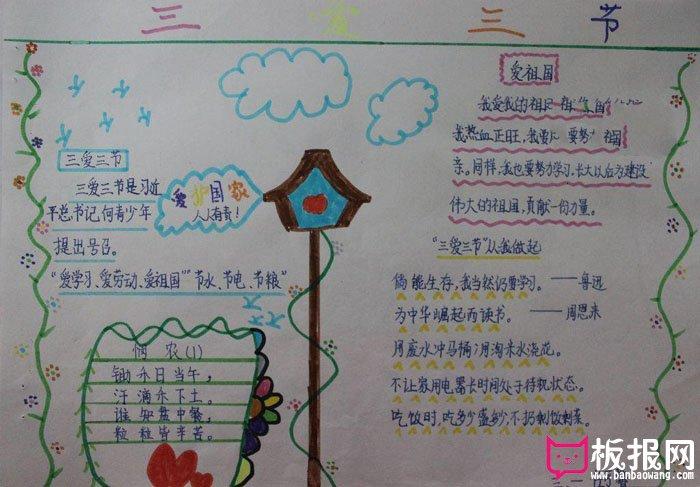 三爱三节
三爱三节
三爱三节是习近
平总书记何青少年
提出号召。
“爱学习、爱劳动、爱祖国”“节水、节电、节粮”
爱护国家
人人有责!
悯农(1)
锄禾日当午,
汗滴禾下土。
谁知盘中餐,
粒粒皆辛苦。
爱祖国
我爱我的祖
我热血正旺,我要 要努力 祖国
亲。同样,我也要努力学习,长大以后为建设
伟大的祖国,贡献一份力量。
“三爱三节”从我做起
倘能生存,我当然仍要学习。——鲁迅
为中华崛起而读书。——周恩来
用废水冲马桶;用淘米水浇花。
不让家用电器长时间处于待机状态。
吃饭时,吃多少盛多少,不扔剩饭剩菜。
板报网
www.banbaowang.com